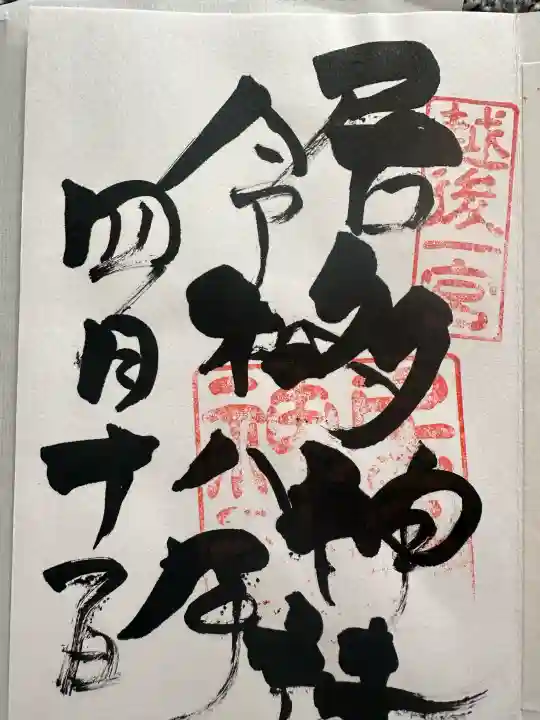 越後一宮
居多神社
令和八年
四月十一日